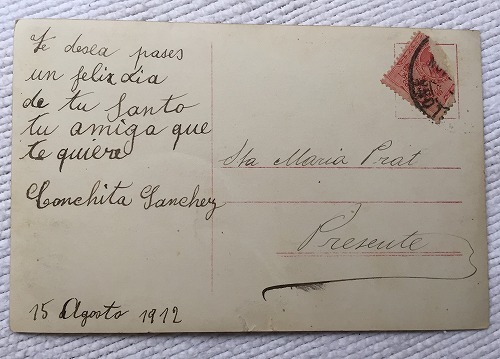 Te desea pases
un feliz dia
de tu Santo
tu amiga que
te quiere
Conchita Sanchez
15 Agosto 1912
Sta Maria Prat
Presente